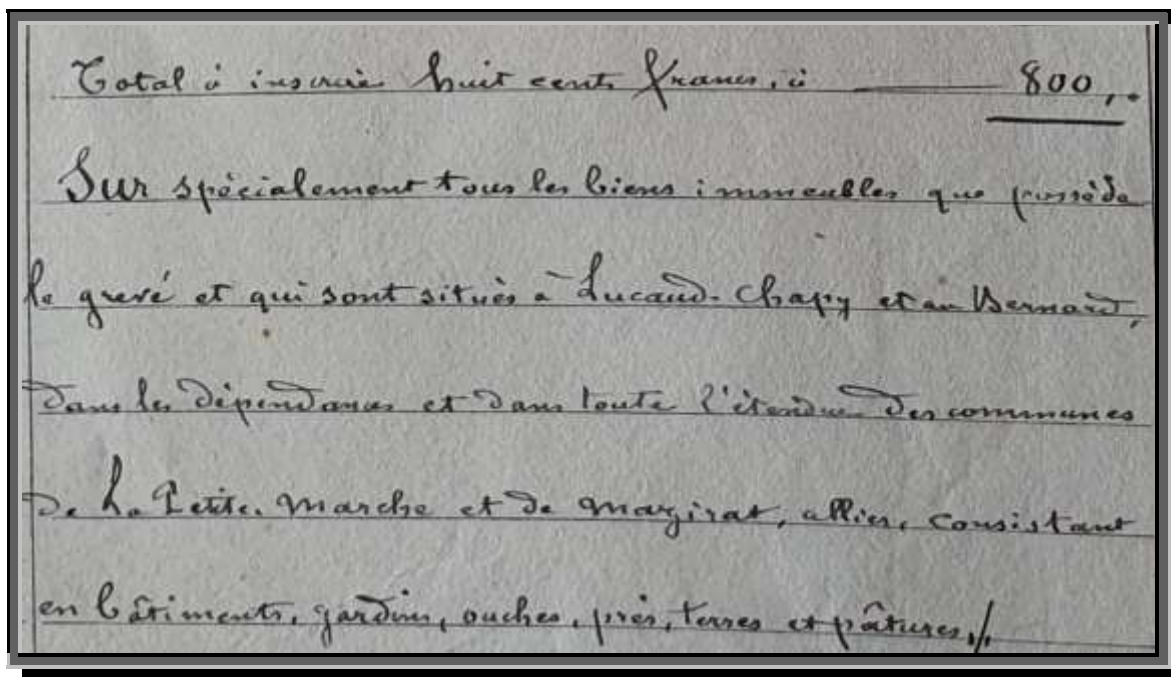 Total à inscrire huit cents francs, ci ——— 800,..
Sur spécialement tous les biens immeubles que possède
le grevé et qui sont situés à Lucaud-Chapy et au Bernard,
dans les dépendances et dans toute l'étendue des communes
de La Petite-Marche et de Mazirat, allier, consistant
en bâtiments, jardins, ouches, près, terres et pâtures,/.